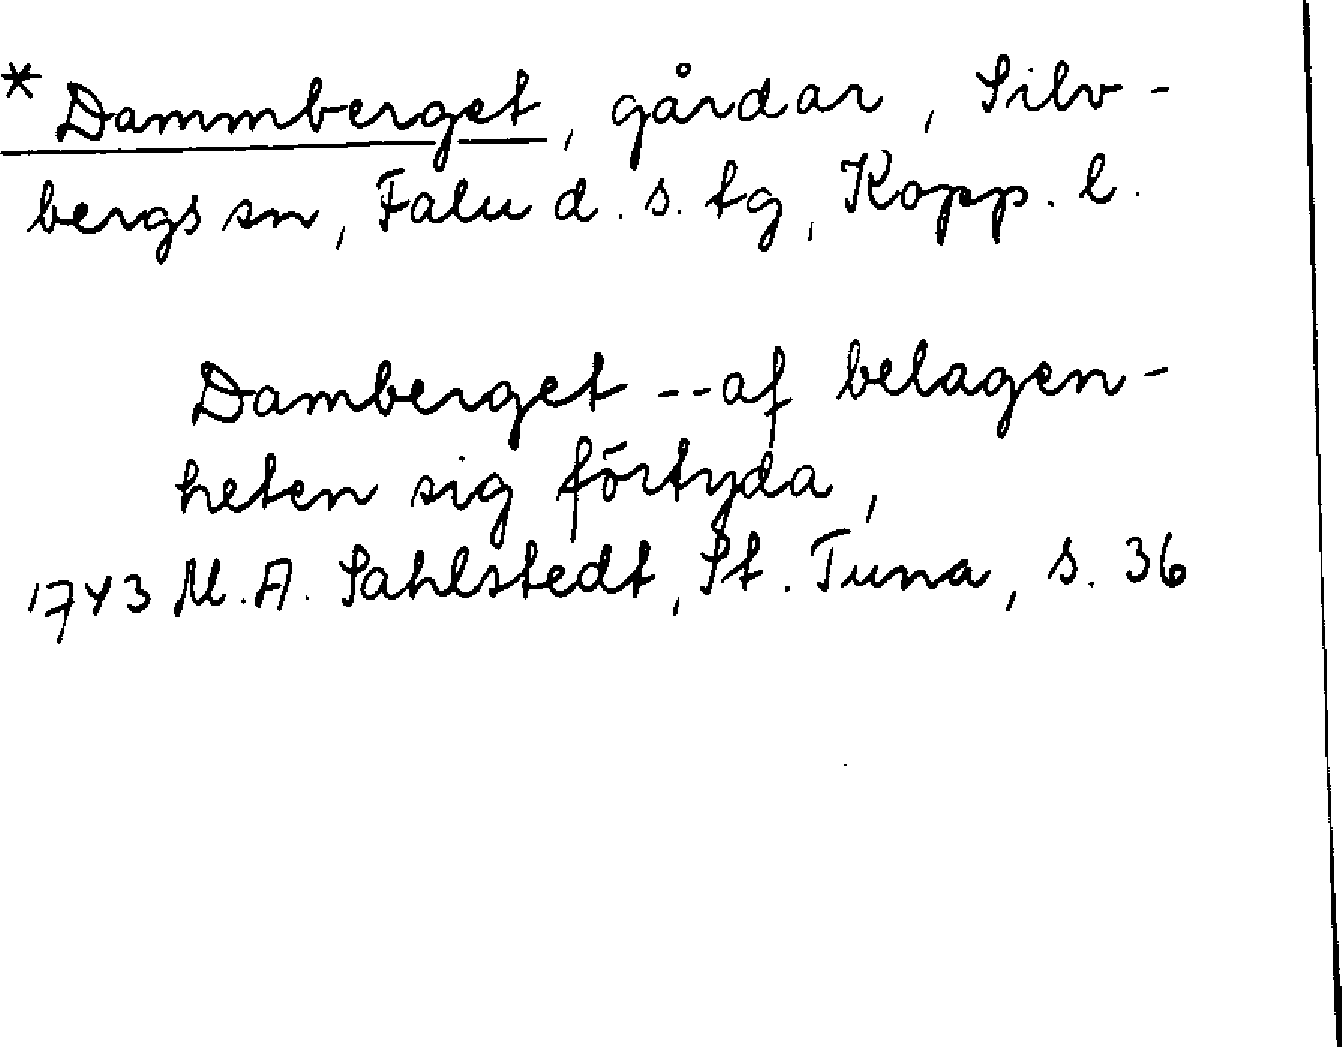 * Dammberget, gårdar, Silv-
bergs sn, Falu d. s. tg, Kopp. l.
Damberget -- af belagen-
heten sig förtyda,
1743 M. A. Sahlstedt, St. Tuna, s. 36